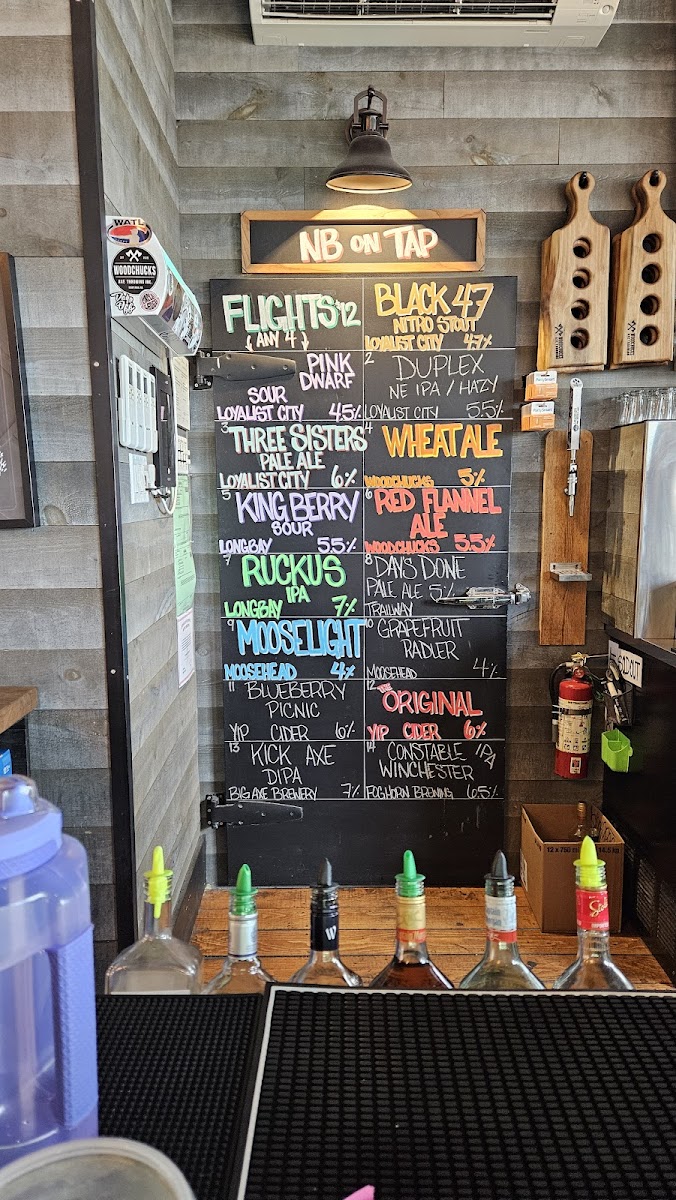 NB ON TAP
FLIGHTS $12
(ANY 4)
BLACK 47
NITRO STOUT
LOYALIST CITY 4.7%
PINK
DWARF
SOUR
LOYALIST CITY 4.5%
2 DUPLEX
NE IPA / HAZY
LOYALIST CITY 5.5%
3 THREE SISTERS
PALE ALE
LOYALIST CITY 6%
4 WHEAT ALE
WOODCHUCKS 5%
5 KING BERRY
SOUR
LONGBAY 5.5%
6 RED FLANNEL
ALE
WOODCHUCKS 5.5%
7 RUCKUS
IPA
LONGBAY 7%
8 DAYS DONE
PALE ALE 5%
TRAILWAY
9 MOOSELIGHT
MOOSEHEAD 4%
10 GRAPEFRUIT
RADLER
MOOSEHEAD 4%
11 BLUEBERRY
PICNIC
YIP CIDER 6%
12 THE
ORIGINAL
YIP CIDER 6%
13 KICK AXE
DIPA
BIG AXE BREWERY 7%
14 CONSTABLE IPA
WINCHESTER
FOGHORN BREWING 6.5%
WATL
WOODCHUCKS
AXE THROWING INC.
SOLD OUT
12 x 750 m
W